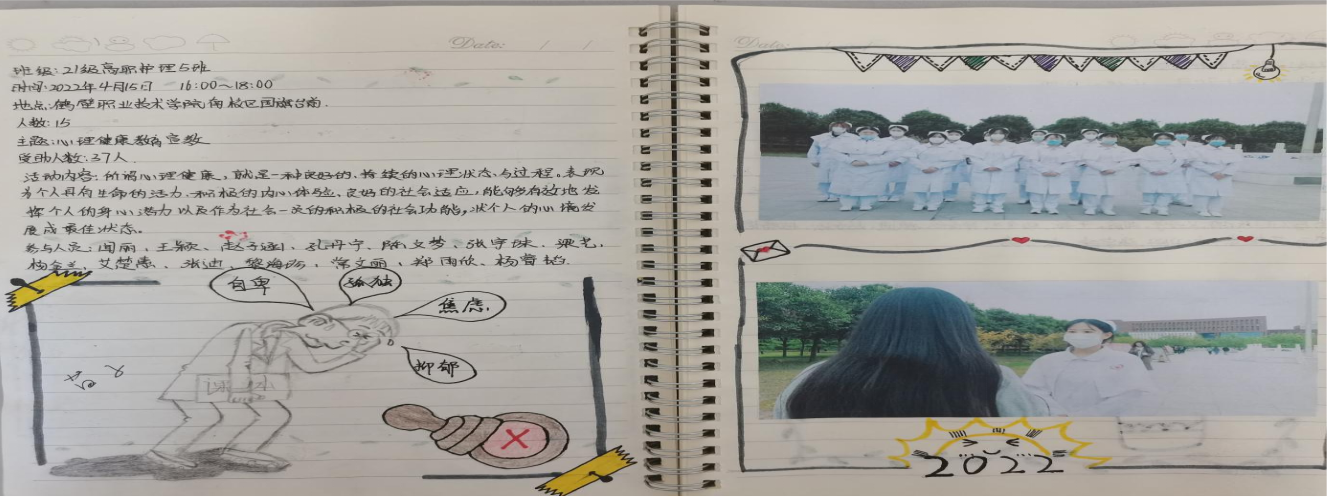 Date: / /
班级:21级高职护理5班
时间:2022年4月15日 16:00~18:00
地点:鹤壁职业技术学院南校区国旗台南.
人数:15
主题:心理健康教育宣教
受助人数:37人.
活动内容:所谓心理健康,就是一种良好的、持续的心理状态与过程。表现
为个人具有生命的活力.积极的内心体验.良好的社会适应,能够有效地发
挥个人的身心潜力以及作为社会一员的积极的社会功能,
度成最佳状态。
参与人员:闫丽、王颖、孔丹宁、
艾楚惠、张迪、常文丽、郑雨欣、
自卑
孤独
焦虑
抑郁
Date: / /
2022